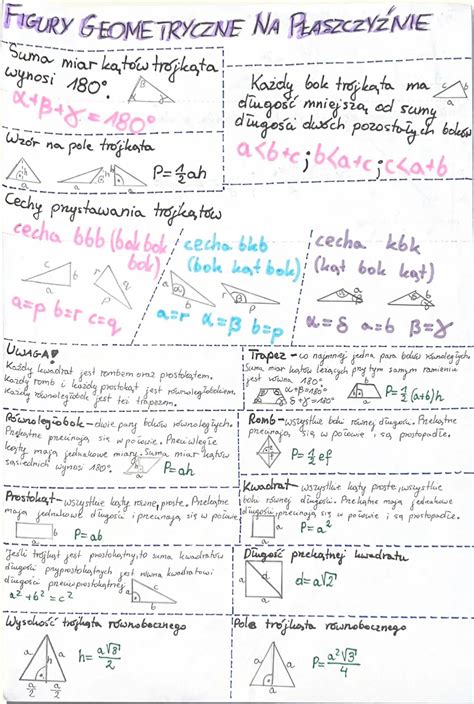 FIGURY GEOMETRYCZNE NA PŁASZCZYŹNIE
Suma miar kątów trójkąta
wynosi 180°.
α+β+γ=180°
Każdy bok trójkąta ma
długość mniejszą od sumy
długości dwóch pozostałych boków
a<b+c; b<a+c; c<a+b
Wzór na pole trójkąta
P=½ah
Cechy przystawania trójkątów
cecha bbb (bok bok
bok)
a=p b=r c=q
cecha bkb
(bok kąt bok)
a=r α=β b=p
cecha kbk
(kąt bok kąt)
α=δ a=b β=γ
UWAGA!
Każdy kwadrat jest rombem oraz prostokątem.
Każdy romb i każdy prostokąt jest równoległobokiem.
Każdy równoległobok jest też trapezem.
Trapez - co najmniej jedna para boków równoległych.
Suma miar kątów leżących przy tym samym ramieniu
jest równa 180°.
α+β=180°
δ+γ=180°
P=½(a+b)h
Równoległobok - dwie pary boków równoległych.
Przekątne przecinają się w połowie. Przeciwległe
kąty mają jednakowe miary. Suma miar kątów
sąsiednich wynosi 180°.
P=ah
Romb - wszystkie boki równej długości. Przekątne
przecinają się w połowie i są prostopadłe.
P=½ef
Prostokąt - wszystkie kąty równe, proste. Przekątne
mają jednakowe długości i przecinają się w połowie
P=ab
Kwadrat - wszystkie kąty proste, wszystkie
boki równej długości. Przekątne mają jednakowe
długości, przecinają się w połowie i są prostopadłe.
P=a²
Jeśli trójkąt jest prostokątny, to suma kwadratów
długości przyprostokątnych jest równa kwadratowi
długości przeciwprostokątnej
a²+b²=c²
Długość przekątnej kwadratu
d=a√2
Wysokość trójkąta równobocznego
h=a√3/2
Pole trójkąta równobocznego
P=a²√3/4